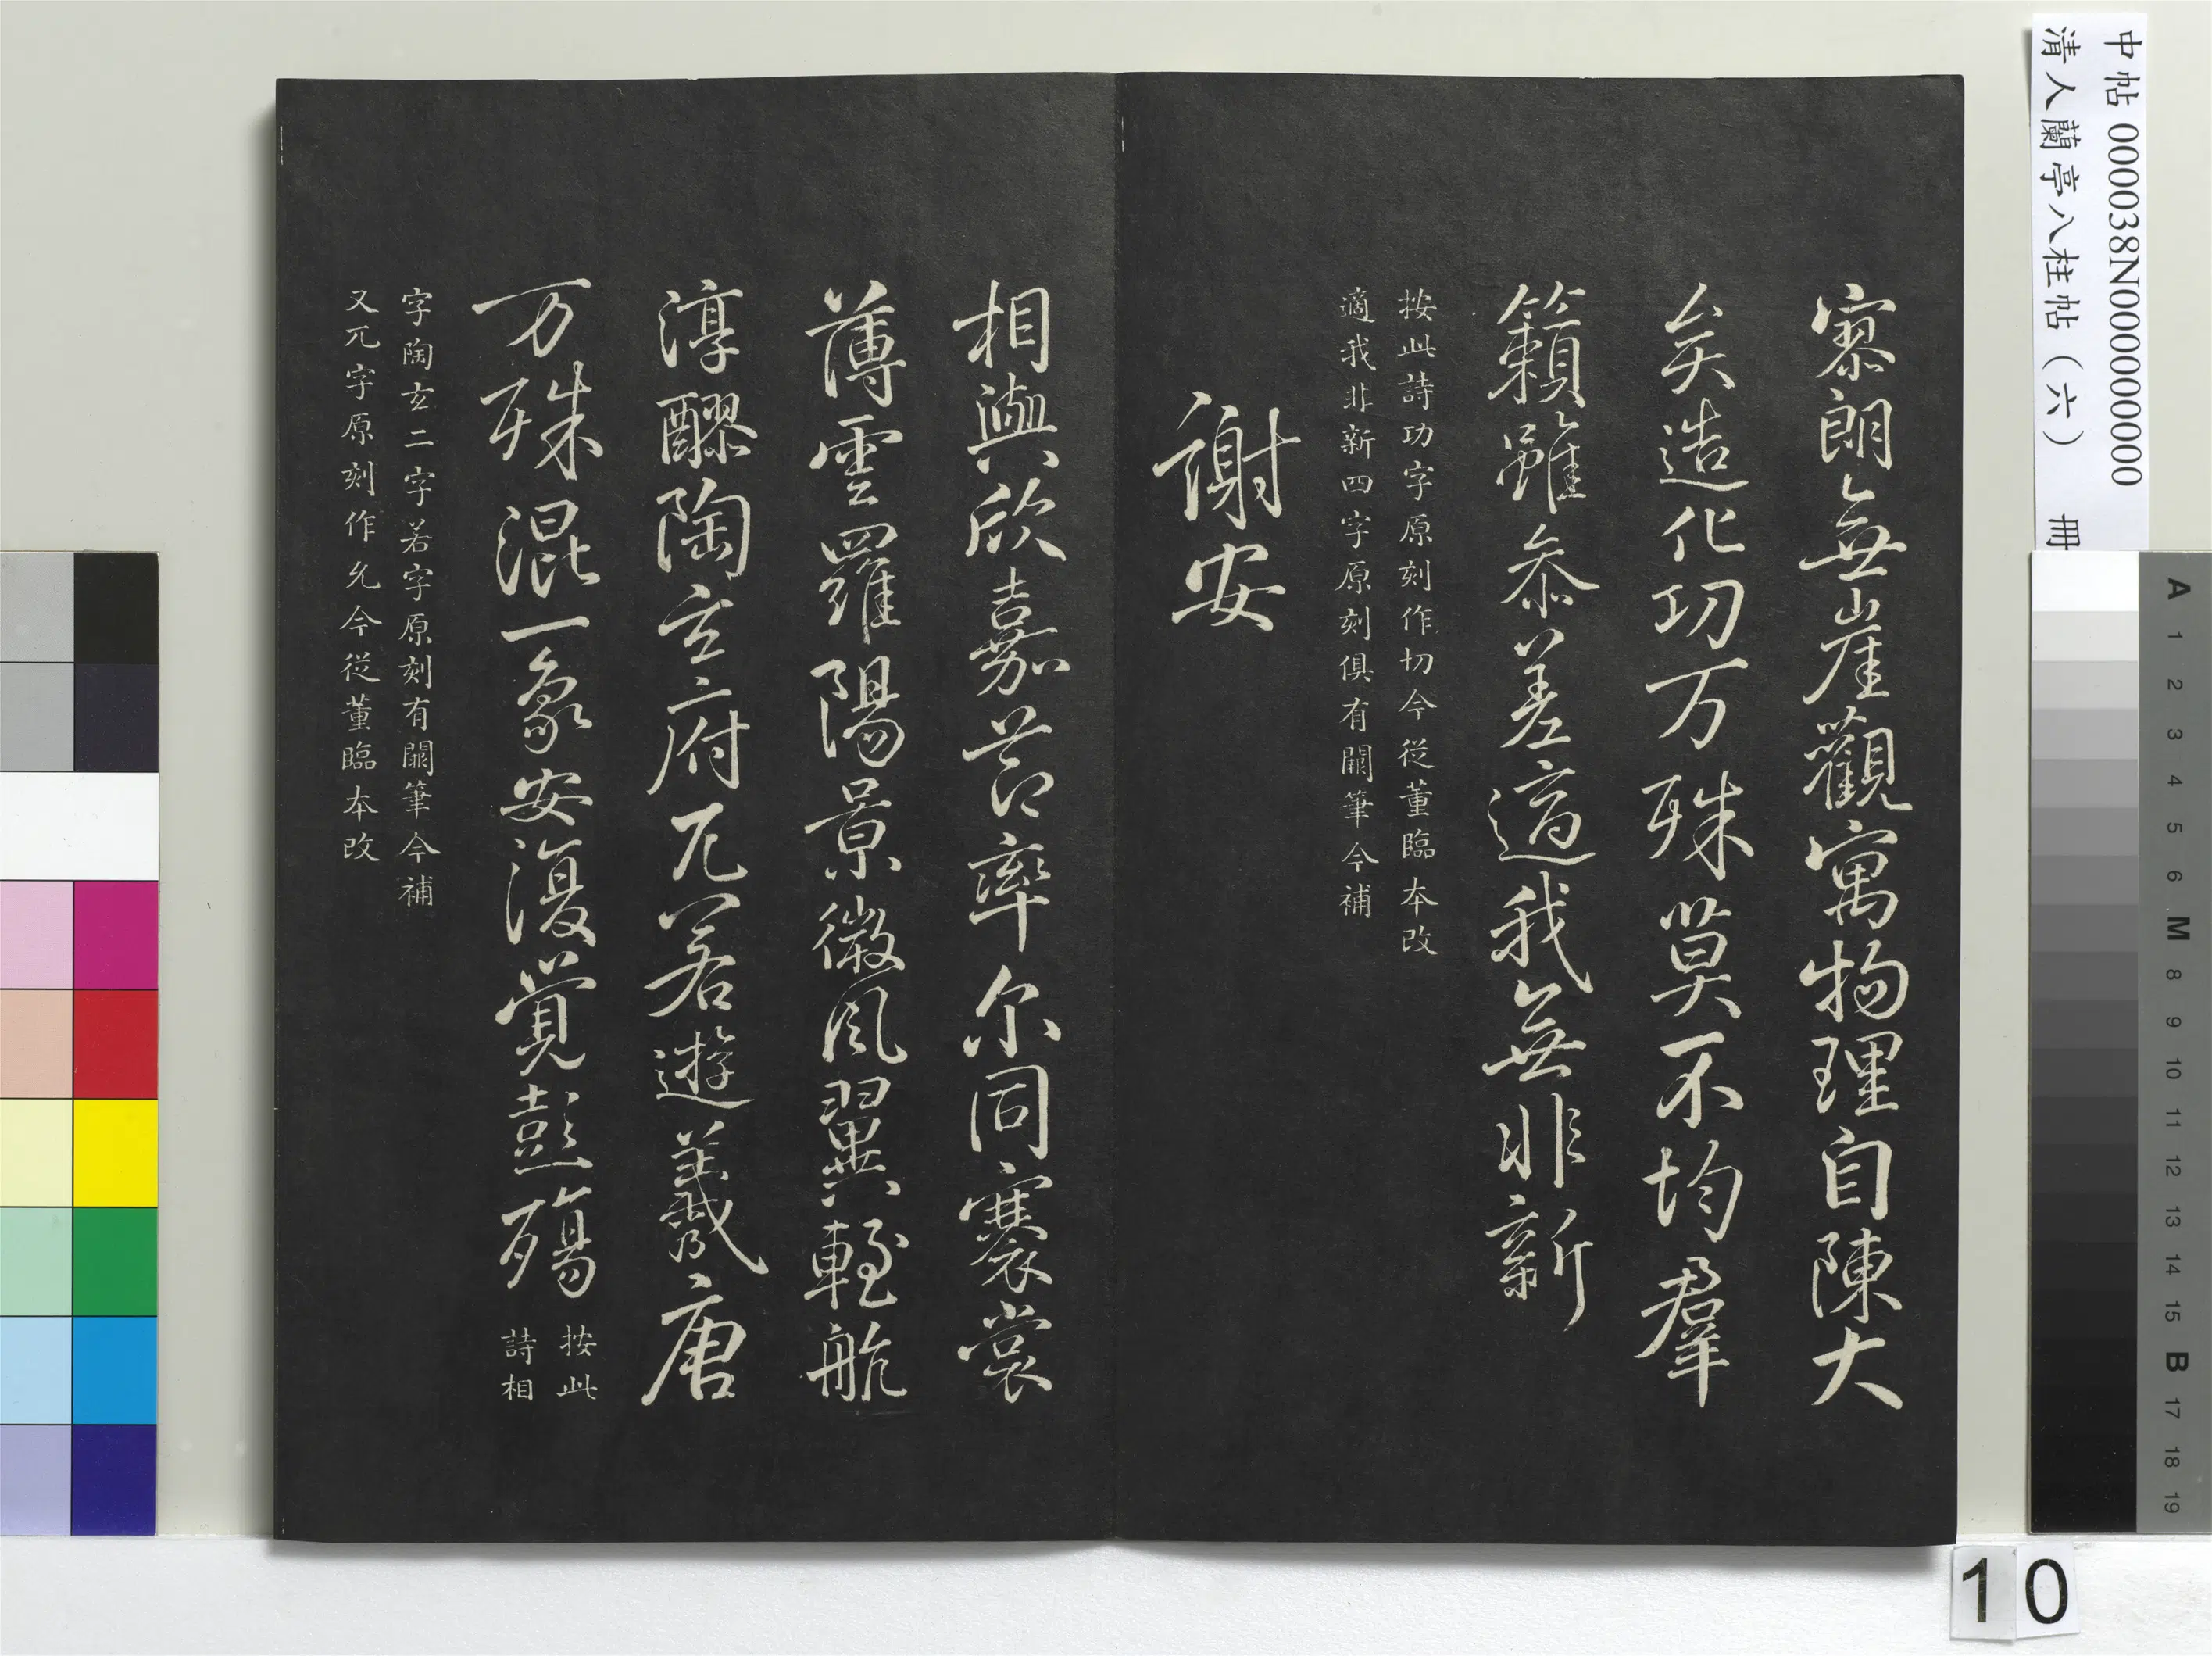 寥朗無崖觀寓物理自陳大
矣造化功万殊莫不均羣
籟雖參差適我無非新
按此詩功字原刻作切今從董臨本改
適我非新四字原刻俱有闕筆今補
謝安
相與欣嘉節率尔同褰裳
薄雲羅陽景微風翼輕航
淳醪陶玄府兀若遊羲唐
万殊混一象安復覺彭殤
按此
詩相
字陶玄二字若字原刻有闕筆今補
又兀字原刻作允今從董臨本改
中帖 000038N000000000
清人蘭亭八柱帖（六） 冊
A 1 2 3 4 5 6 M 8 9 10 11 12 13 14 15 B 17 18 19
10